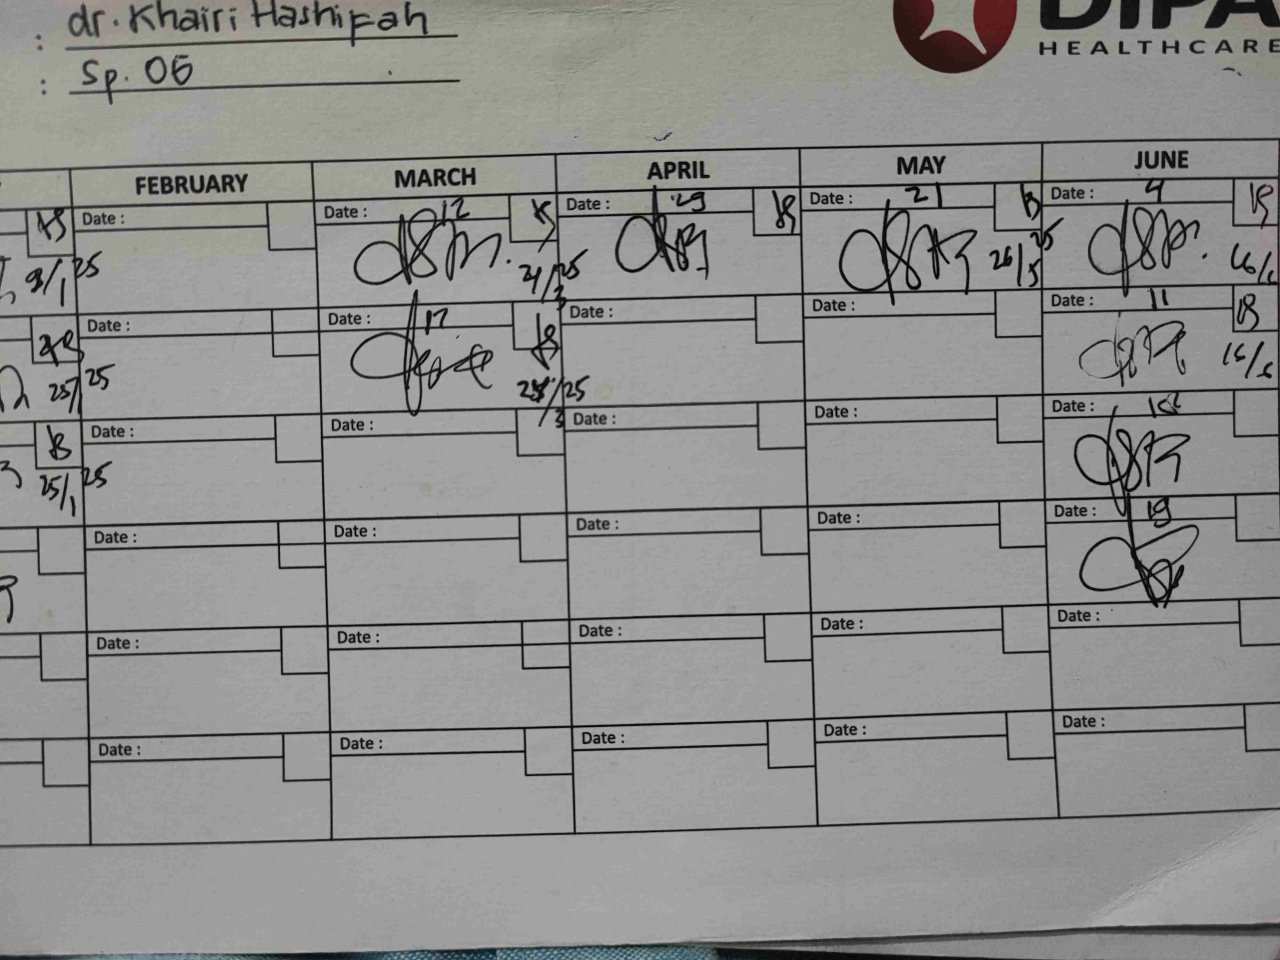 : dr. Khairi Hashifah
: Sp. OG
DIPA
HEALTHCARE
FEBRUARY MARCH APRIL MAY JUNE
Date : Date : 12 Date : 29 Date : 21 Date : 4
9/1 25 21/3 25 26/5 25 16/6
Date : Date : 17 Date : Date : Date : 11
25/1 25 25/3 25 16/6
Date : Date : Date : Date : Date :
25/1 25
Date : Date : Date : Date : Date : 19
Date : Date : Date : Date : Date :
Date : Date : Date : Date : Date :